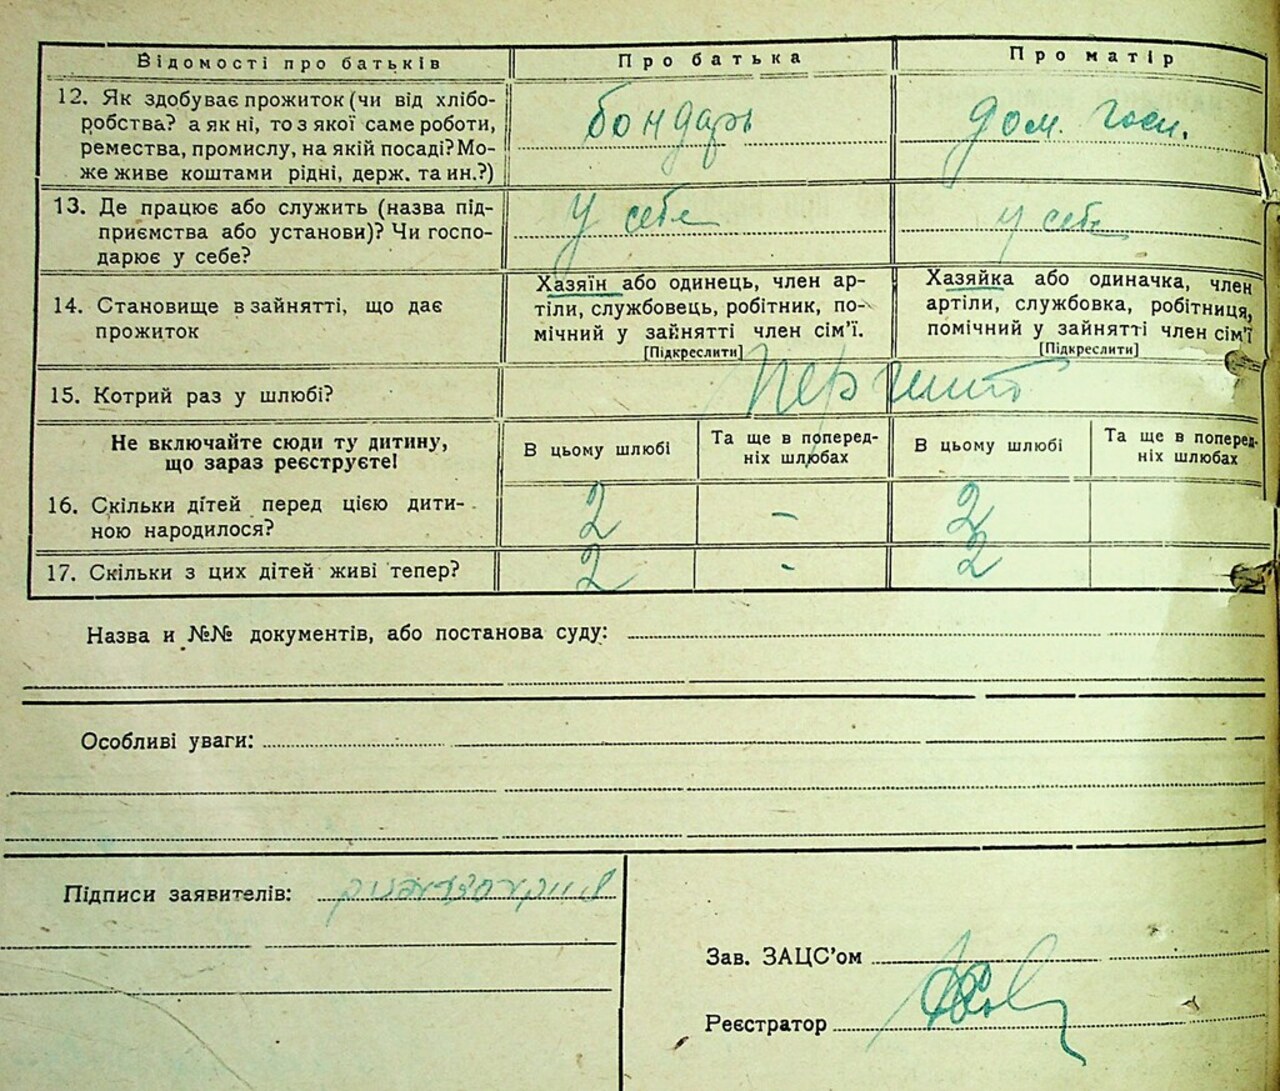 Відомості про батьків
Про батька
Про матір
12. Як здобуває прожиток (чи від хлібо-
робства? а як ні, то з якої саме роботи,
ремества, промислу, на якій посаді? Мо-
же живе коштами рідні, держ. та ин.?)
бондарь
дом. госп.
13. Де працює або служить (назва під-
приємства або установи)? Чи госпо-
дарює у себе?
у себе
у себе
14. Становище в зайнятті, що дає
прожиток
Хазяїн або одинець, член ар-
тіли, службовець, робітник, по-
мічний у зайнятті член сім'ї.
[Підкреслити]
Хазяйка або одиначка, член
артіли, службовка, робітниця,
помічний у зайнятті член сім'ї
[Підкреслити]
15. Котрий раз у шлюбі?
Не включайте сюди ту дитину,
що зараз реєструєте!
В цьому шлюбі
Та ще в поперед-
ніх шлюбах
В цьому шлюбі
Та ще в поперед-
ніх шлюбах
16. Скільки дітей перед цією дити-
ною народилося?
2
-
2
17. Скільки з цих дітей живі тепер?
2
-
2
Назва и №№ документів, або постанова суду:
Особливі уваги:
Підписи заявителів:
Зав. ЗАЦС'ом
Реєстратор